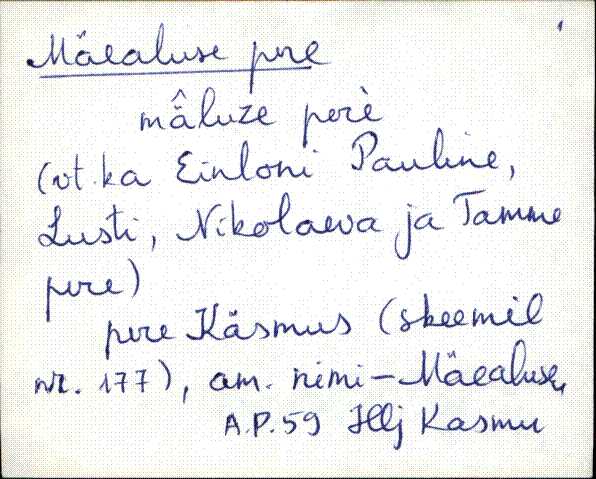 Mäealuse pere
mâluze perè
(vt. ka Einloni Pauline,
Lusti, Nikolaeva ja Tamme
pere)
pere Käsmus (skeemil
nr. 177), am. nimi – Mäealuse,
A.P. 59 Hlj Kasmu